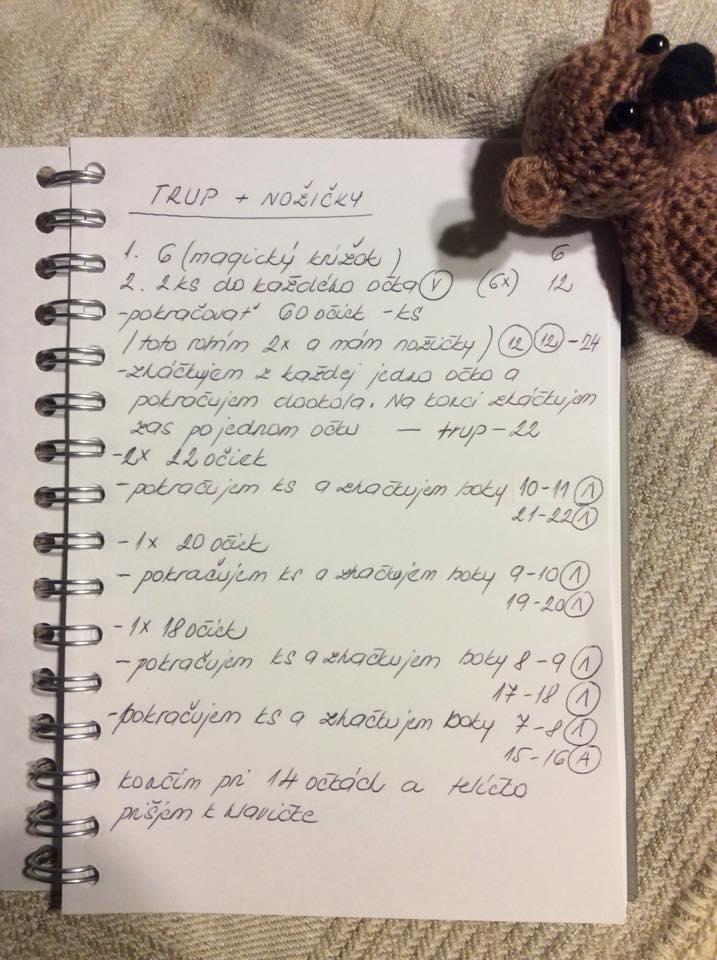 TRUP + NOŽIČKY
1. 6 (magický krúžok) 6
2. 2ks do každého očka (V) (6x) 12
- pokračovať 60 očiek - ks
(toto robím 2x a mám nožičky) (12) (12) - 24
- zháčkujem z každej jedno očko a
pokračujem dookola. Na konci zháčkujem
zas po jednom očku — trup - 22
- 2x 22 očiek
- pokračujem ks a zháčkujem boky 10-11 (Λ)
21-22 (Λ)
- 1x 20 očiek
- pokračujem ks a zháčkujem boky 9-10 (Λ)
19-20 (Λ)
- 1x 18 očiek
- pokračujem ks a zháčkujem boky 8-9 (Λ)
17-18 (Λ)
- pokračujem ks a zháčkujem boky 7-8 (Λ)
15-16 (Λ)
končím pri 14 očkách a telíčko
prišijem k hlavičke